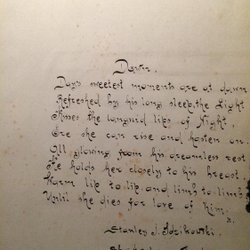 Dawn.
Day's sweetest moments are at dawn
Refreshed by his long sleep, the Light
Kisses the languid lips of Night,
Ere she can rise and hasten on.
All glowing from his dreamless rest
He holds her closely to his breast,
Warm lip to lip and limb to limb,
Until she dies for love of him.
Stanley J.